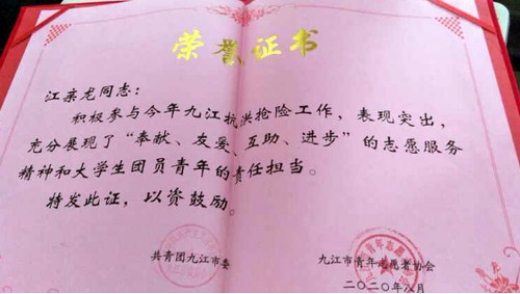 荣誉证书
江亲龙同志：
积极参与今年九江抗洪抢险工作，表现突出，
充分展现了“奉献、友爱、互助、进步”的志愿服务
精神和大学生团员青年的责任担当。
特发此证，以资鼓励。
共青团九江市委
九江市青年志愿者协会
二〇二〇年八月